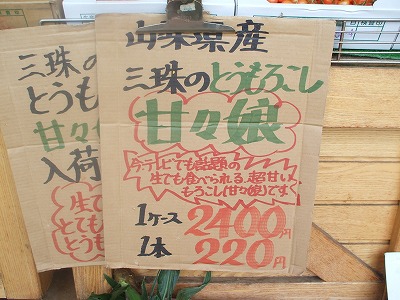 山梨県産
三珠のとうもろこし
甘々娘
今テレビでも話題の
生でも食べられる、超甘い、
もろこし(甘々娘)です。
1ケース 2400円
1本 220円
三珠の
とうも
甘々
入荷
生で
とても
とうも